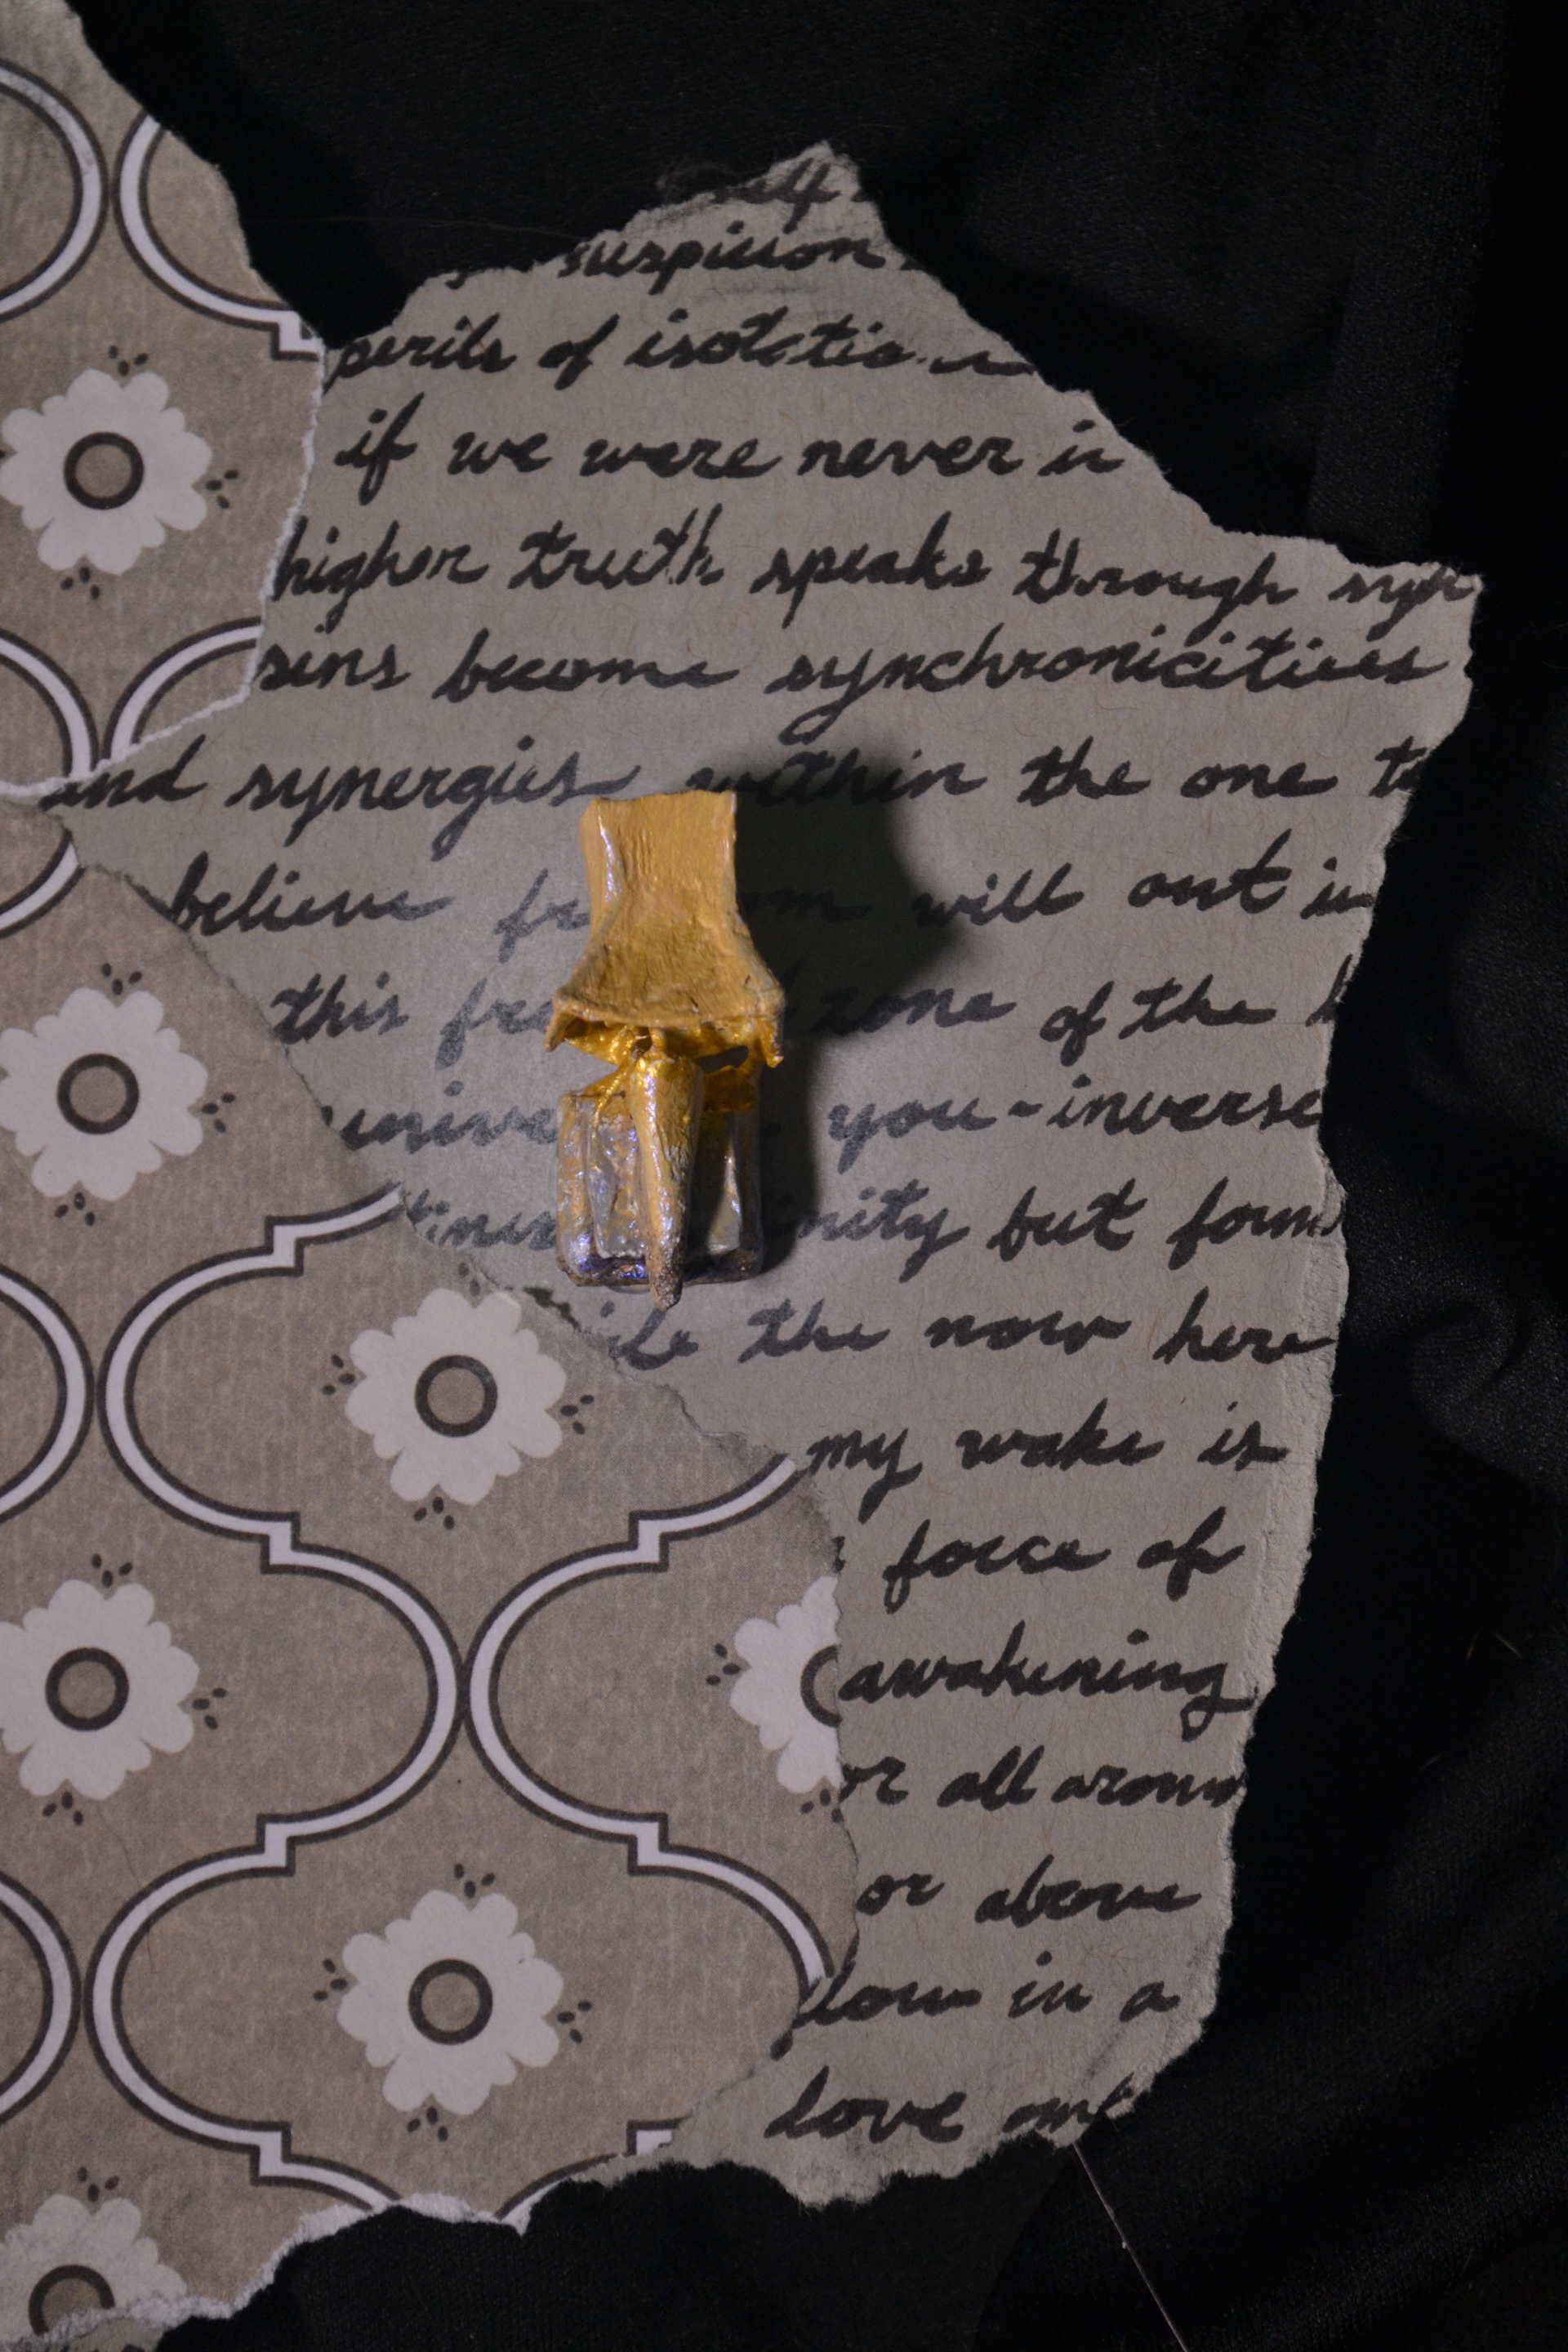 suspicion
perils of isolation
if we were never in
higher truth speaks through syn
sins become synchronicities
and synergies within the one
believe will out in
this zone of the
you-inverse
but form
the now here
my wake is
force of
awakening
or all aroun
or above
in a
love